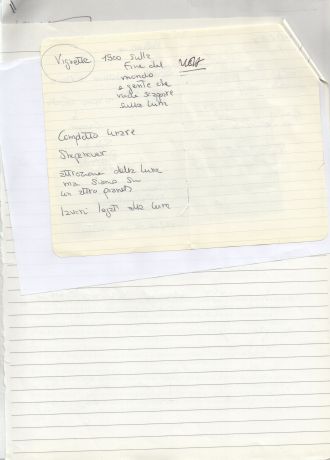 Vignette 1500 sulla
Fine del
mondo
e gente che
vuole scappare
sulla luna
Complotto lunare
attrazione della luna
ma siamo su
un altro pianeta
lavori legati alla luna